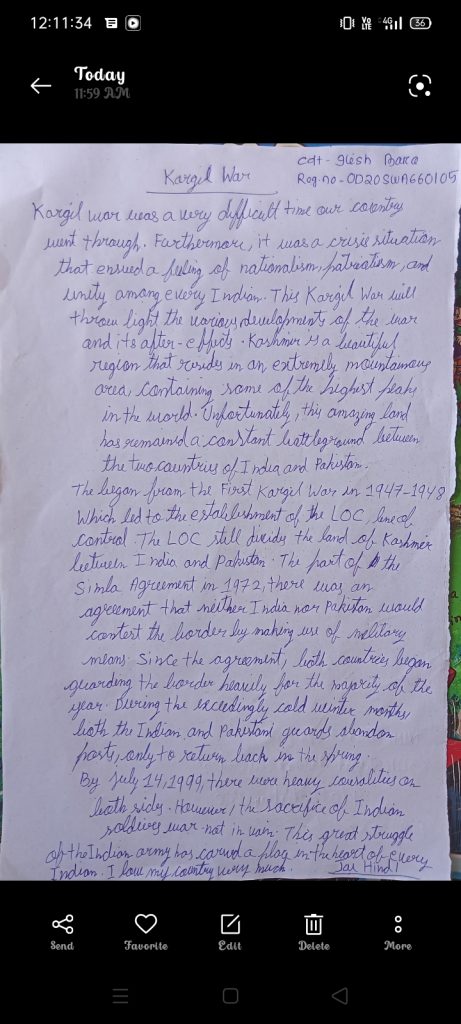 12:11:34
Vo LTE 4G 36
Today
11:59 AM
Cdt - Jlesh Barca
Kargil War
Reg. no - OD20SWA660105
Kargil war was a very difficult time our country
went through. Furthermore, it was a crisis situation
that ensued a feeling of nationalism, patriotism, and
unity among every Indian. This Kargil War will
throw light the various developments of the war
and its after-effects. Kashmir is a beautiful
region that resides in an extremely mountainous
area, containing some of the highest peaks
in the world. Unfortunately, this amazing land
has remained a constant battleground between
the two countries of India and Pakistan.
The began from the First Kargil War in 1947-1948
Which led to the establishment of the LOC, line of
control. The LOC still divides the land of Kashmir
between India and Pakistan. The part of the
Simla Agreement in 1972, there was an
agreement that neither India nor Pakistan would
contest the border by making use of military
means. Since the agreement, both countries began
guarding the border heavily for the majority of the
year. During the exceedingly cold winter months,
both the Indian and Pakistani guards abandon
posts, only to return back in the spring.
By July 14, 1999, there were heavy causalities on
both sides. However, the sacrifice of Indian
soldiers was not in vain. This great struggle
of the Indian army has carved a flag in the heart of every
Indian. I love my country very much. Jai Hind!
Send
Favorite
Edit
Delete
More